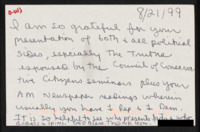 8/21/99
I am so grateful for your
presentation of both & all political
sides especially the Truths
espoused by the Council of Conserva-
tive Citizens seminars plus your
AM Newspaper readings wherein
usually you have 1 Rep & 1 Dem.
It is so helpful to see who presents